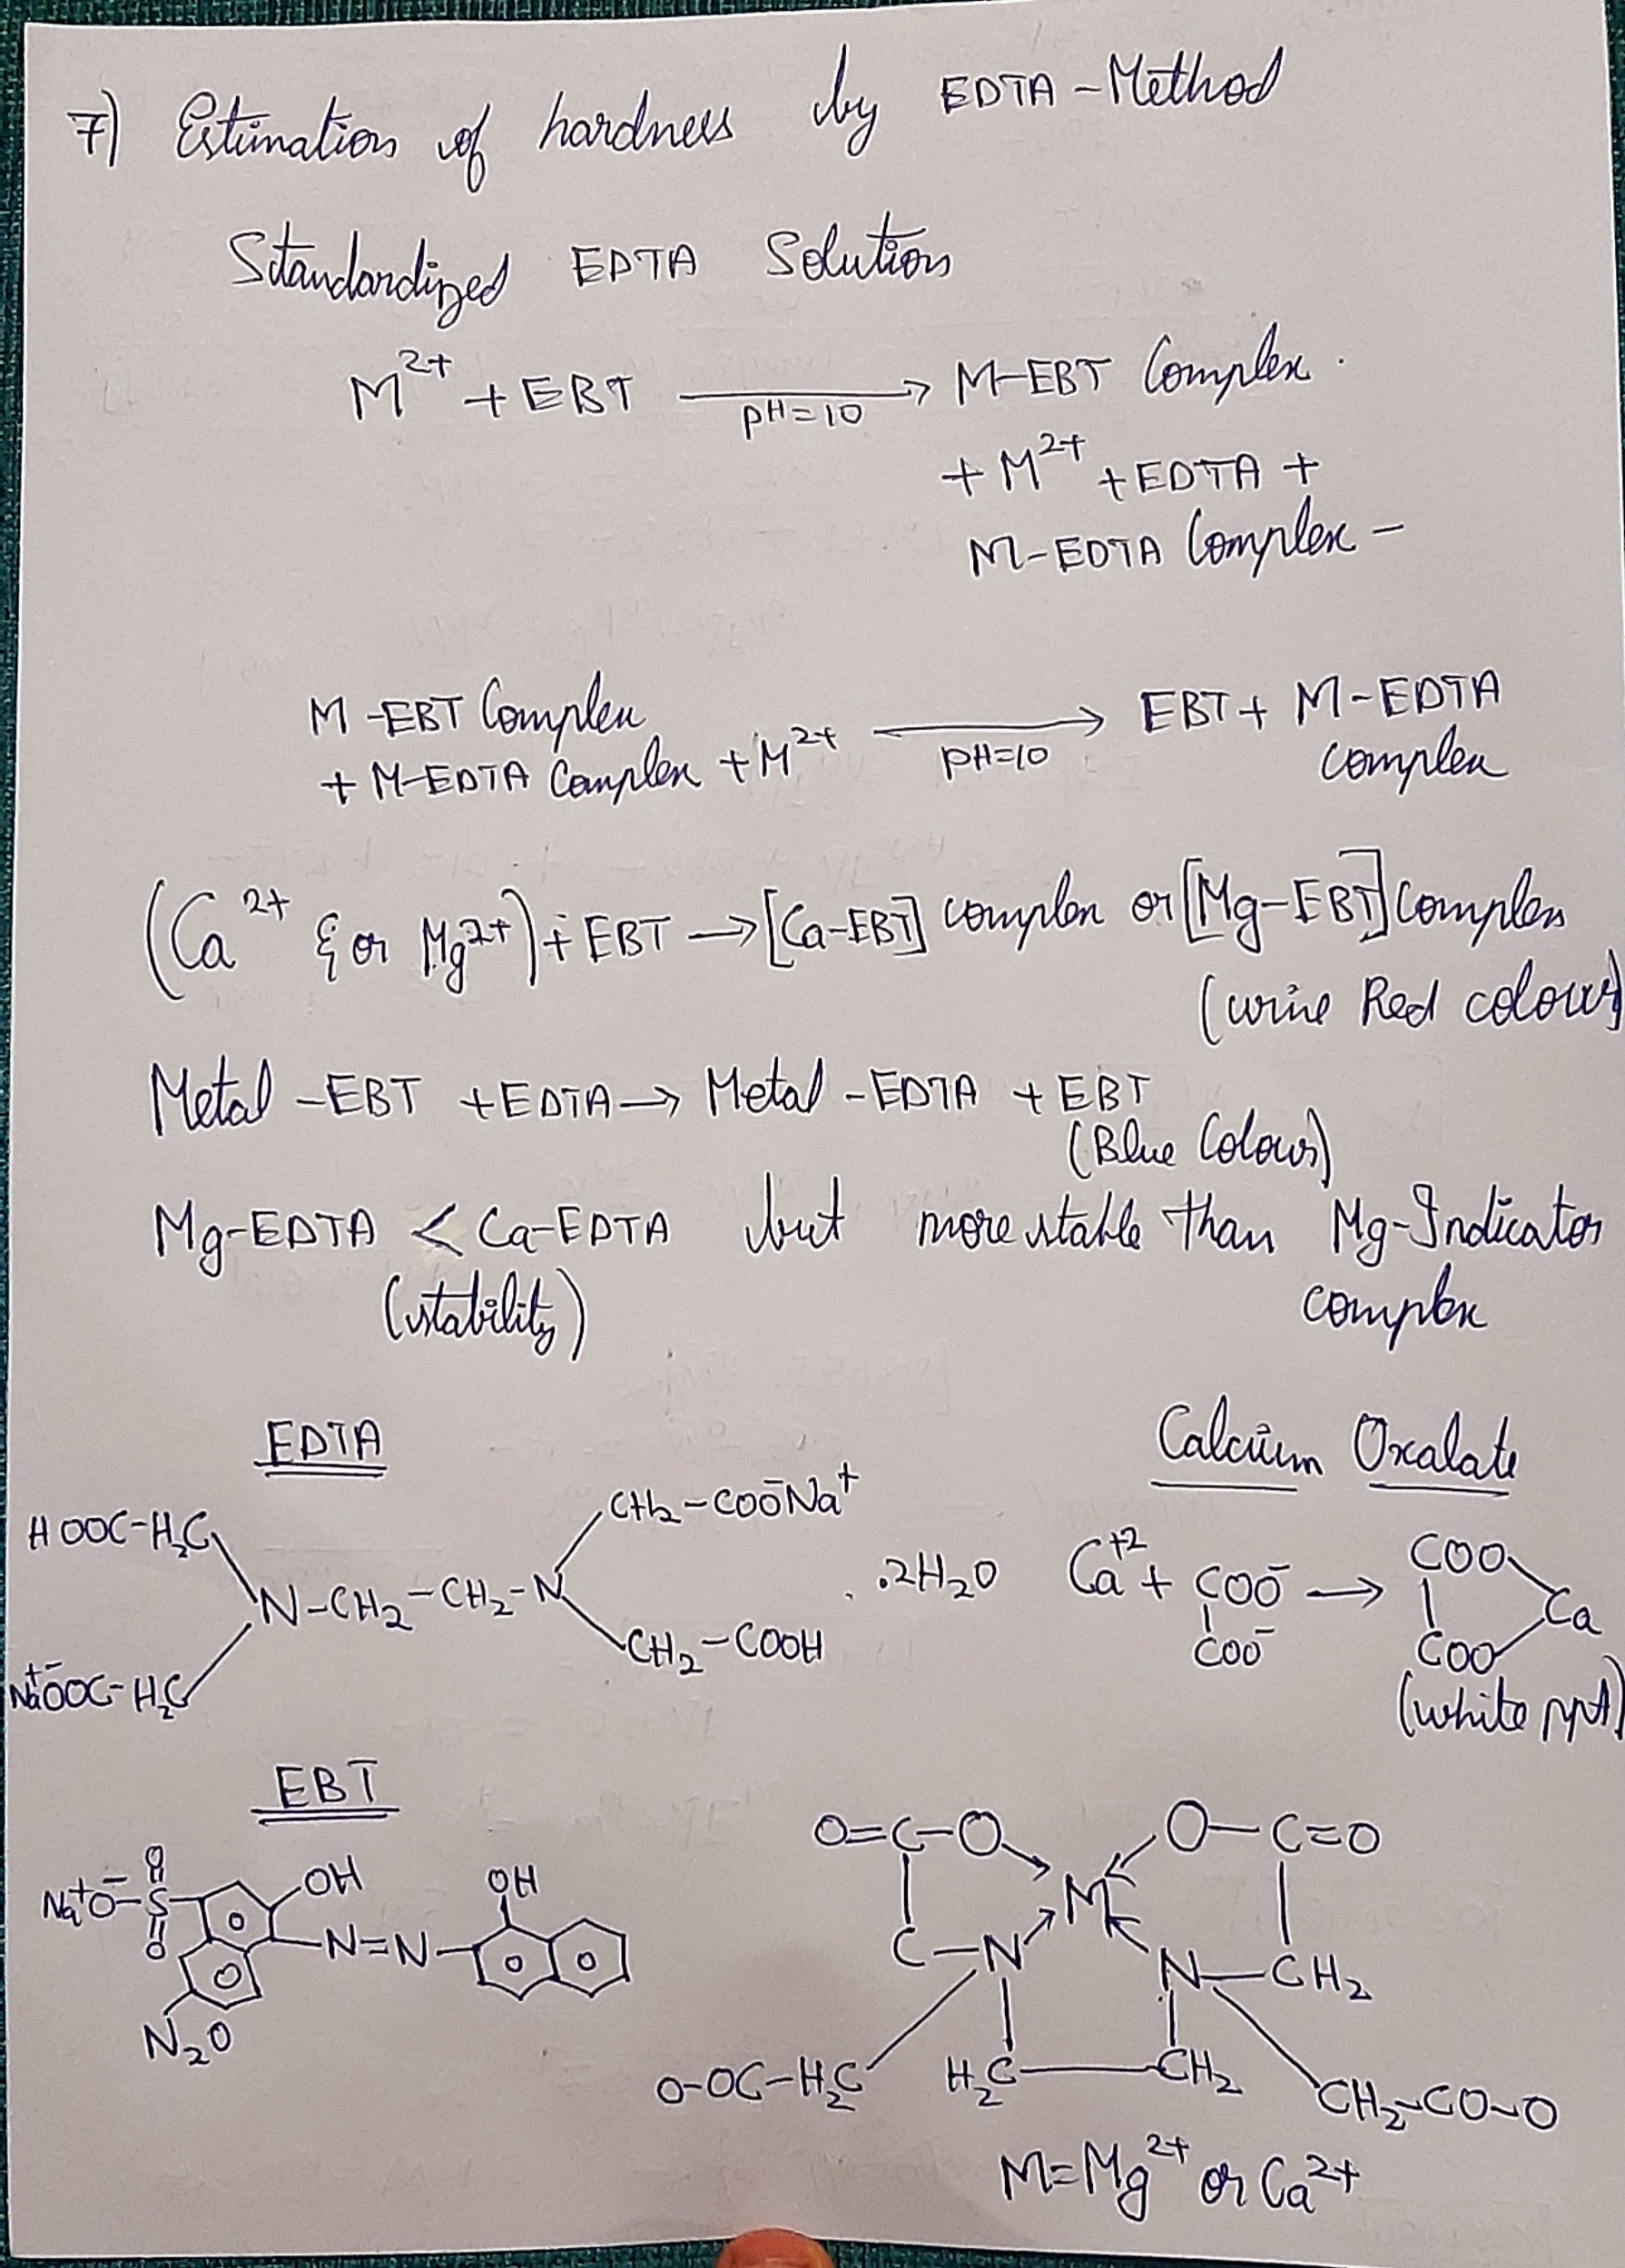 7) Estimation of hardness by EDTA-Method
Standardized EDTA Solution
M²⁺ + EBT → M-EBT Complex.
pH=10
+ M²⁺ + EDTA +
M-EDTA Complex -
M-EBT Complex
+ M-EDTA Complex + M²⁺ → EBT + M-EDTA
pH=10 complex
(Ca²⁺ & or Mg²⁺) + EBT → [Ca-EBT] complex or [Mg-EBT] Complex
(wine Red colour)
Metal -EBT + EDTA → Metal -EDTA + EBT
(Blue Colour)
Mg-EDTA < Ca-EDTA but more stable than Mg-Indicator
(stability) complex
EDTA
HOOC-H₂C
CH₂-COO⁻Na⁺
N-CH₂-CH₂-N
.2H₂O
Na⁺⁻OOC-H₂C
CH₂-COOH
Calcium Oxalate
Ca⁺² + COO⁻ → COO
COO⁻ COO Ca
(white ppt)
EBT
Na⁺O⁻-S
O
O
OH
N=N
OH
N₂O
O=C-O M O-C=O
C-N N-CH₂
O-OC-H₂C H₂C-CH₂ CH₂-CO-O
M=Mg²⁺ or Ca²⁺